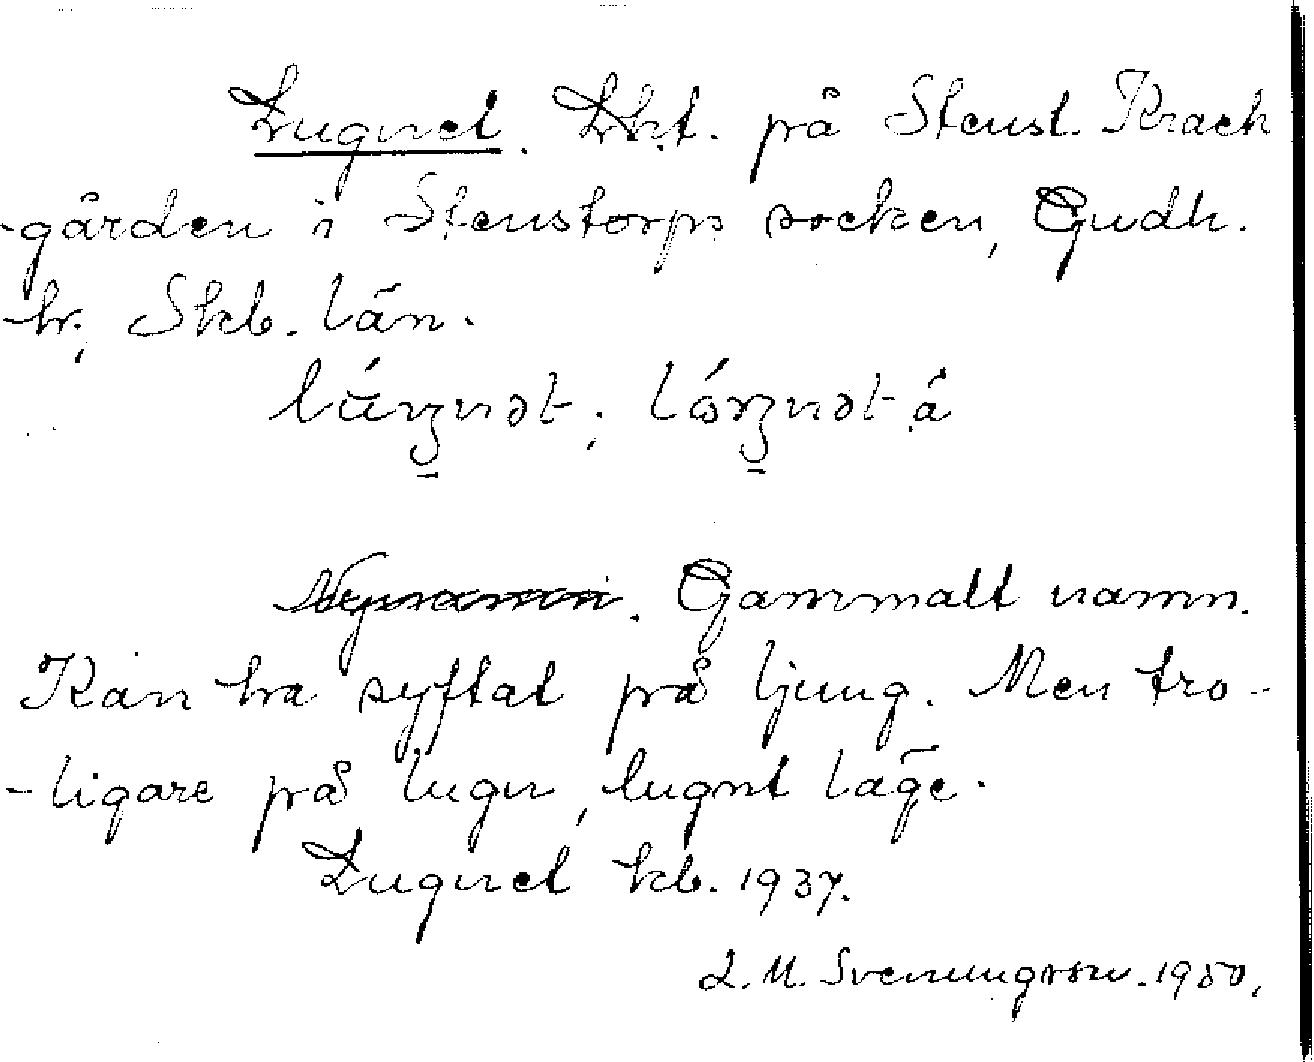 Lugnet. Lht. på Stenst. Krack
-gården i Stenstorps socken, Gudh.
hr, Skb. län.
Gammalt namn.
Kan ha syftat på ljung. Men tro-
-ligare på lugn, lugnt läge.
Lugnet kb. 1937.
L. M. Svenungsson. 1950.